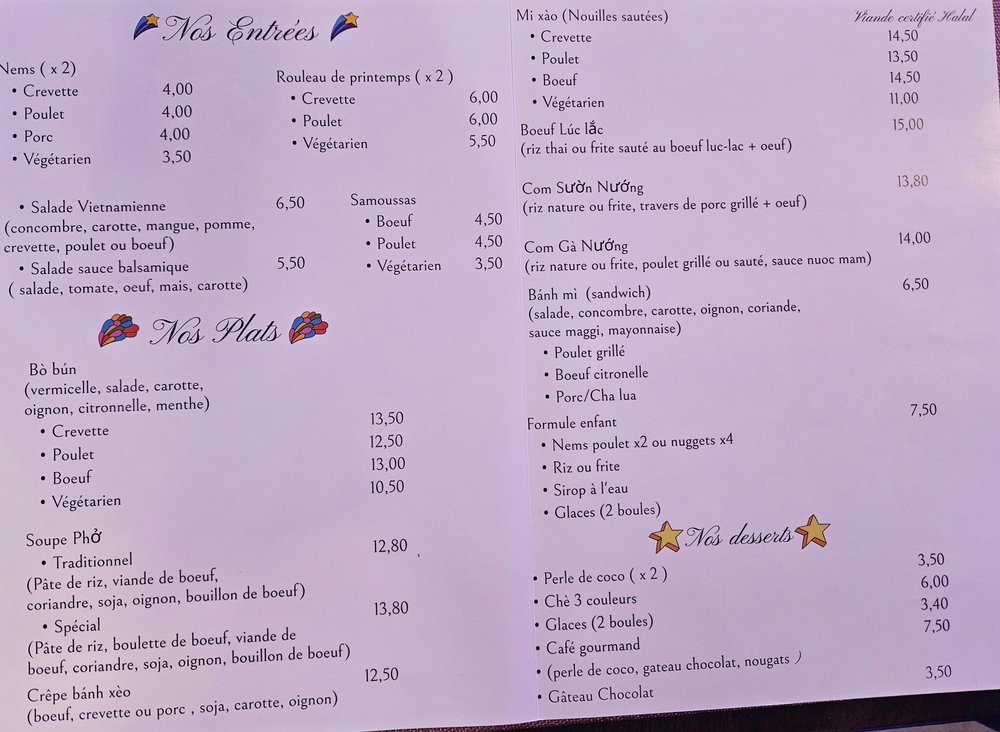 Nos Entrées
Nems ( x 2)
• Crevette 4,00
• Poulet 4,00
• Porc 4,00
• Végétarien 3,50
Rouleau de printemps ( x 2 )
• Crevette 6,00
• Poulet 6,00
• Végétarien 5,50
• Salade Vietnamienne 6,50
(concombre, carotte, mangue, pomme,
crevette, poulet ou boeuf)
• Salade sauce balsamique 5,50
( salade, tomate, oeuf, mais, carotte)
Samoussas
• Boeuf 4,50
• Poulet 4,50
• Végétarien 3,50
Nos Plats
Bò bún
(vermicelle, salade, carotte,
oignon, citronnelle, menthe)
• Crevette 13,50
• Poulet 12,50
• Boeuf 13,00
• Végétarien 10,50
Soupe Phở
• Traditionnel 12,80
(Pâte de riz, viande de boeuf,
coriandre, soja, oignon, bouillon de boeuf)
• Spécial 13,80
(Pâte de riz, boulette de boeuf, viande de
boeuf, coriandre, soja, oignon, bouillon de boeuf)
Crêpe bánh xèo 12,50
(boeuf, crevette ou porc , soja, carotte, oignon)
Viande certifié Halal
Mi xào (Nouilles sautées)
• Crevette 14,50
• Poulet 13,50
• Boeuf 14,50
• Végétarien 11,00
Boeuf Lúc lắc 15,00
(riz thai ou frite sauté au boeuf luc-lac + oeuf)
Com Sườn Nướng 13,80
(riz nature ou frite, travers de porc grillé + oeuf)
Com Gà Nướng 14,00
(riz nature ou frite, poulet grillé ou sauté, sauce nuoc mam)
Bánh mì (sandwich) 6,50
(salade, concombre, carotte, oignon, coriande,
sauce maggi, mayonnaise)
• Poulet grillé
• Boeuf citronelle
• Porc/Cha lua
Formule enfant 7,50
• Nems poulet x2 ou nuggets x4
• Riz ou frite
• Sirop à l'eau
• Glaces (2 boules)
Nos desserts
• Perle de coco ( x 2 ) 3,50
• Chè 3 couleurs 6,00
• Glaces (2 boules) 3,40
• Café gourmand 7,50
• (perle de coco, gateau chocolat, nougats )
• Gâteau Chocolat 3,50